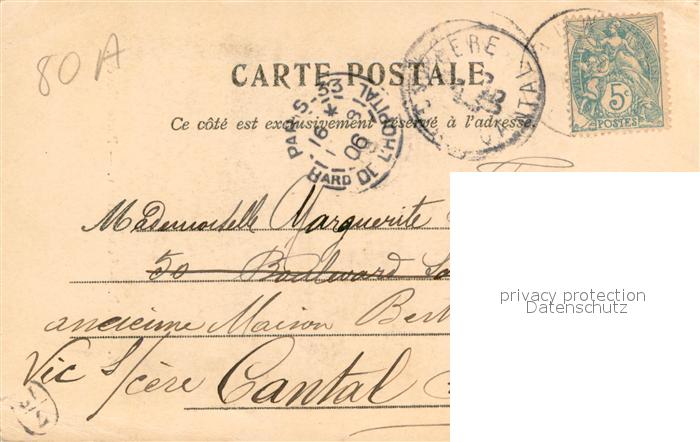 80A
CARTE POSTALE
Ce côté est exclusivement réservé à l'adresse.
5c
POSTES
PARIS-33
16 *
9
06
BARD DE L'HOPITAL
CANTAL
Mademoiselle Marguerite
50 Boulevard
ancienne Maison
Vic S/cère Cantal
privacy protection
Datenschutz